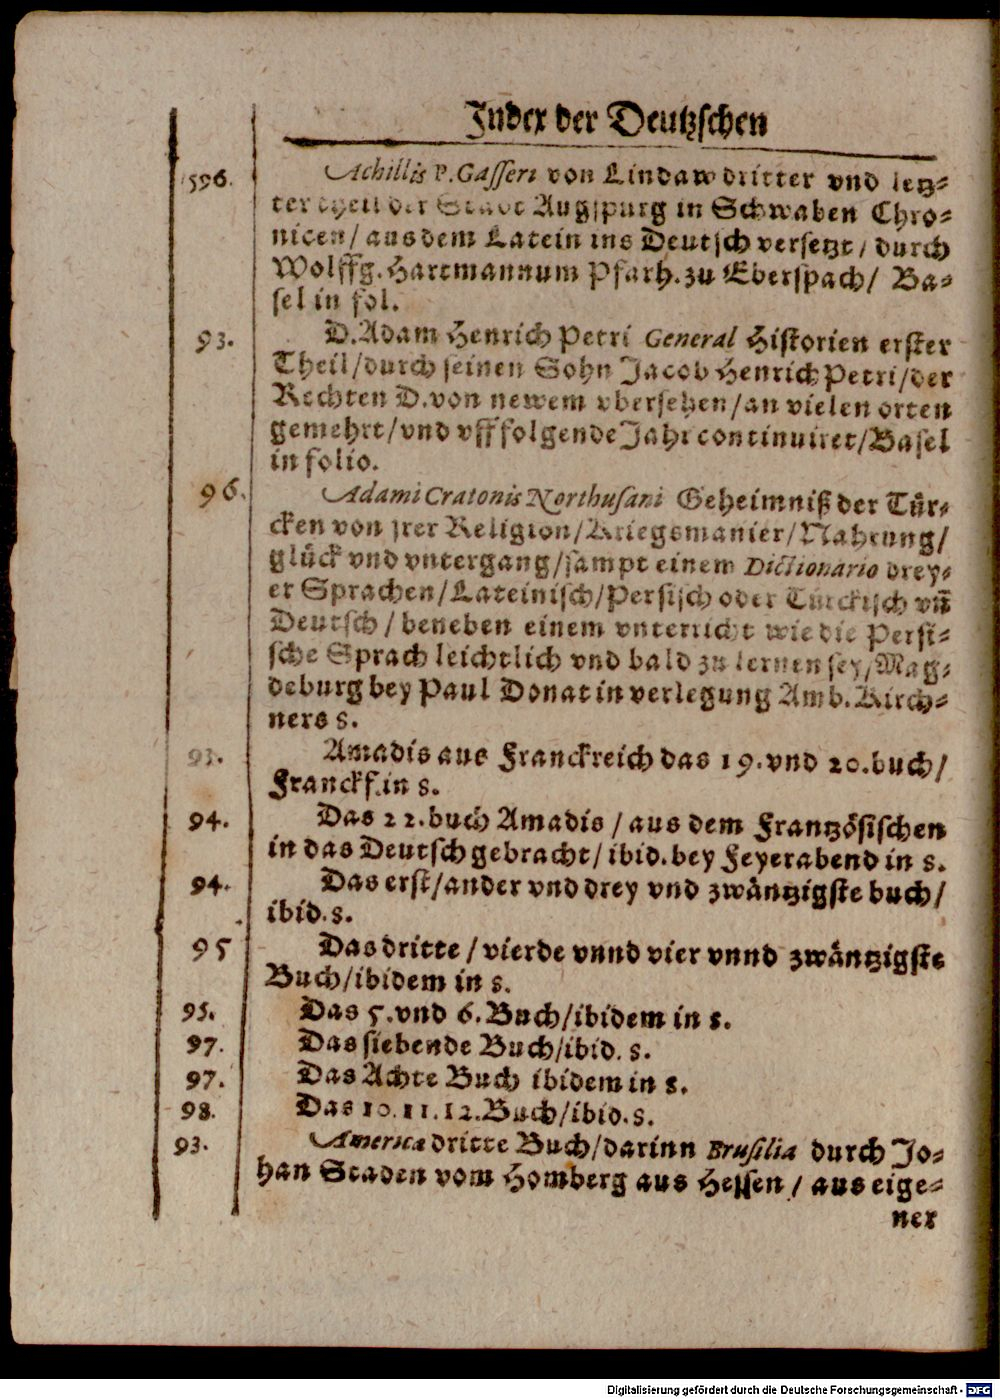 Index der Deutzschen
1596. Achillis P. Gasseri von Lindaw dritter vnd letz-
ter theil der Stadt Augspurg in Schwaben Chro-
nicen/ aus dem Latein ins Deutsch versetzt/ durch
Wolffg. Hartmannum Pfarh. zu Eberspach/ Ba-
sel in fol.
93. D. Adam Henrich Petri General Historien erster
Theil/durch seinen Sohn Jacob Henrich Petri/der
Rechten D. von newem vbersehen/an vielen orten
gemehrt/vnd vff folgende Jahr continuiret/Basel
in folio.
96. Adami Cratonis Northusani Geheimniß der Tür-
cken von jrer Religion/Kriegsmanier/Nahrung/
glück vnd vntergang/sampt einem Dictionario drey-
er Sprachen/Lateinisch/Persisch oder Türckisch vñ
Deutsch/ beneben einem vnterricht wie die Persi-
sche Sprach leichtlich vnd bald zu lernen sey/Mag-
deburg bey Paul Donat in verlegung Amb. Kirch-
ners 8.
93. Amadis aus Franckreich das 19. vnd 20. buch/
Franckf. in 8.
94. Das 22. buch Amadis / aus dem Frantzösischen
in das Deutsch gebracht/ ibid. bey Feyerabend in 8.
94. Das erst/ander vnd drey vnd zwäntzigste buch/
ibid. 8.
95 Das dritte / vierde vnnd vier vnnd zwäntzigste
Buch/ibidem in 8.
95. Das 5. vnd 6. Buch/ibidem in 8.
97. Das siebende Buch/ibid. 8.
97. Das Achte Buch ibidem in 8.
98. Das 10. 11. 12. Buch/ibid. 8.
93. America dritte Buch/darinn Brusilia durch Jo-
han Staden vom Homberg aus Hessen / aus eige-
ner
Digitalisierung gefördert durch die Deutsche Forschungsgemeinschaft - DFG